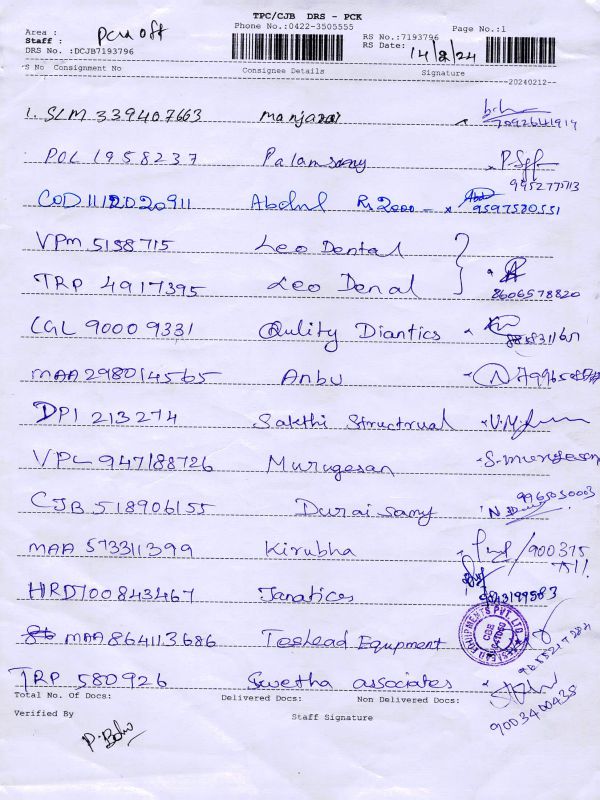 TPC/CJB DRS - PCK
Phone No.:0422-3505555
Area : pcu off
Staff :
DRS No. :DCJB7193796
RS No.:7193796
Page No.:1
RS Date: 14/8/24
S No Consignment No Consignee Details Signature
--20240212--
1. SLM 339407663 Manjarai
7092641919
POL 1958237 Palamsamy
COD 1112020911 Abdul Rs 2000 - x 9597580551
VPM 5158715 Leo Dental
TRP 4917395 Leo Denal 8606578820
CGL 90009331 Qulity Diantics
MAA 298014565 Anbu
DPI 213274 Sakthi Structrual
VPL 947188726 Murugesan S. murugesan
CJB 518906155 Duraisamy 9965050003
MAA 573311399 Kirubha
HRD700843467 Janatices 9843199583
MAA 864113686 Teslead Equpment
TRP 580926 Swetha associates
9003400435
Total No. Of Docs: Delivered Docs: Non Delivered Docs:
Verified By Staff Signature